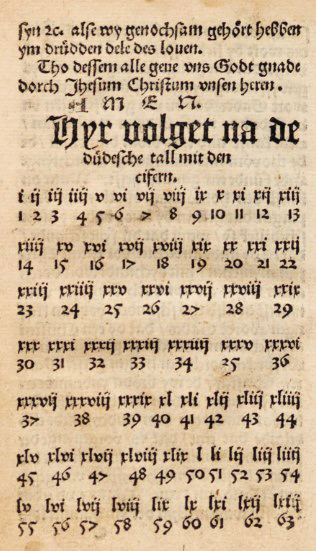 syn ꝛc. alse wy genochsam gehört hebben
ym drüdden dele des louen.
Tho dessem alle geue vns Godt gnade
dorch Jhesum Christum vnsen heren.
AMEN.
Hyr volget na de
düdesche tall mit den
cifern.
i ij iij iiij v vi vij viij ix x xi xij xiij
1 2 3 4 5 6 7 8 9 10 11 12 13
xiiij xv xvi xvij xviij xix xx xxi xxij
14 15 16 17 18 19 20 21 22
xxiij xxiiij xxv xxvi xxvij xxviij xxix
23 24 25 26 27 28 29
xxx xxxi xxxij xxxiij xxxiiij xxxv xxxvi
30 31 32 33 34 25 36
xxxvij xxxviij xxxix xl xli xlij xliij xliiij
37 38 39 40 41 42 43 44
xlv xlvi xlvij xlviij xlix l li lij liij liiij
45 46 47 48 49 50 51 52 53 54
lv lvi lvij lviij lix lx lxi lxij lxiij
55 56 57 58 59 60 61 62 63